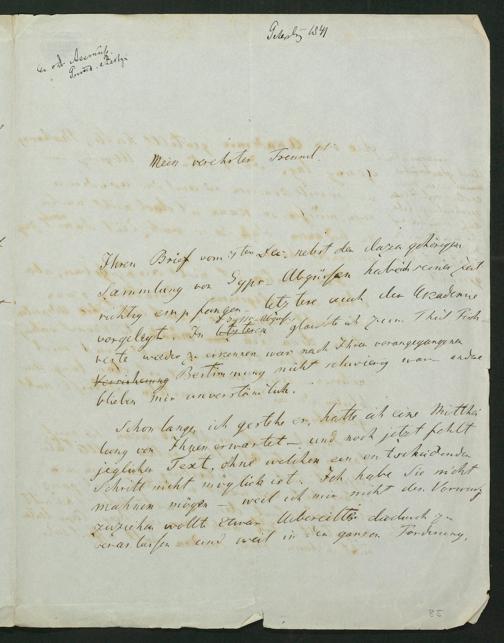 Petersbg 1841
Mein verehrter Freund.
Ihren Brief vom 7ten Dec. nebst der dazu gehörigen
Sammlung von Gyps-Abgüssen habe ich seiner Zeit
richtig empfangen letztere auch der Academie
vorgelegt. In den Gyps-Abgüssen glaubte ich zum Theil Fisch-
reste wieder zu erkennen was nach Ihrer vorangegangenen
Bestimmung nicht schwierig war andre
blieben mir unverständlich.
Schon lange, ich gestehe es, hatte ich eine Mitthei
lung von Ihnen erwartet – und noch jetzt fehlt
jeglicher Text, ohne welchen ein entscheidender
Schritt nicht möglich ist. Ich habe Sie nicht
mahnen mögen – weil ich mir nicht den Vorwurf
zuziehen wollte etwas Uebereiltes dadurch zu
veranlassen und weil in der ganzen Forderung,